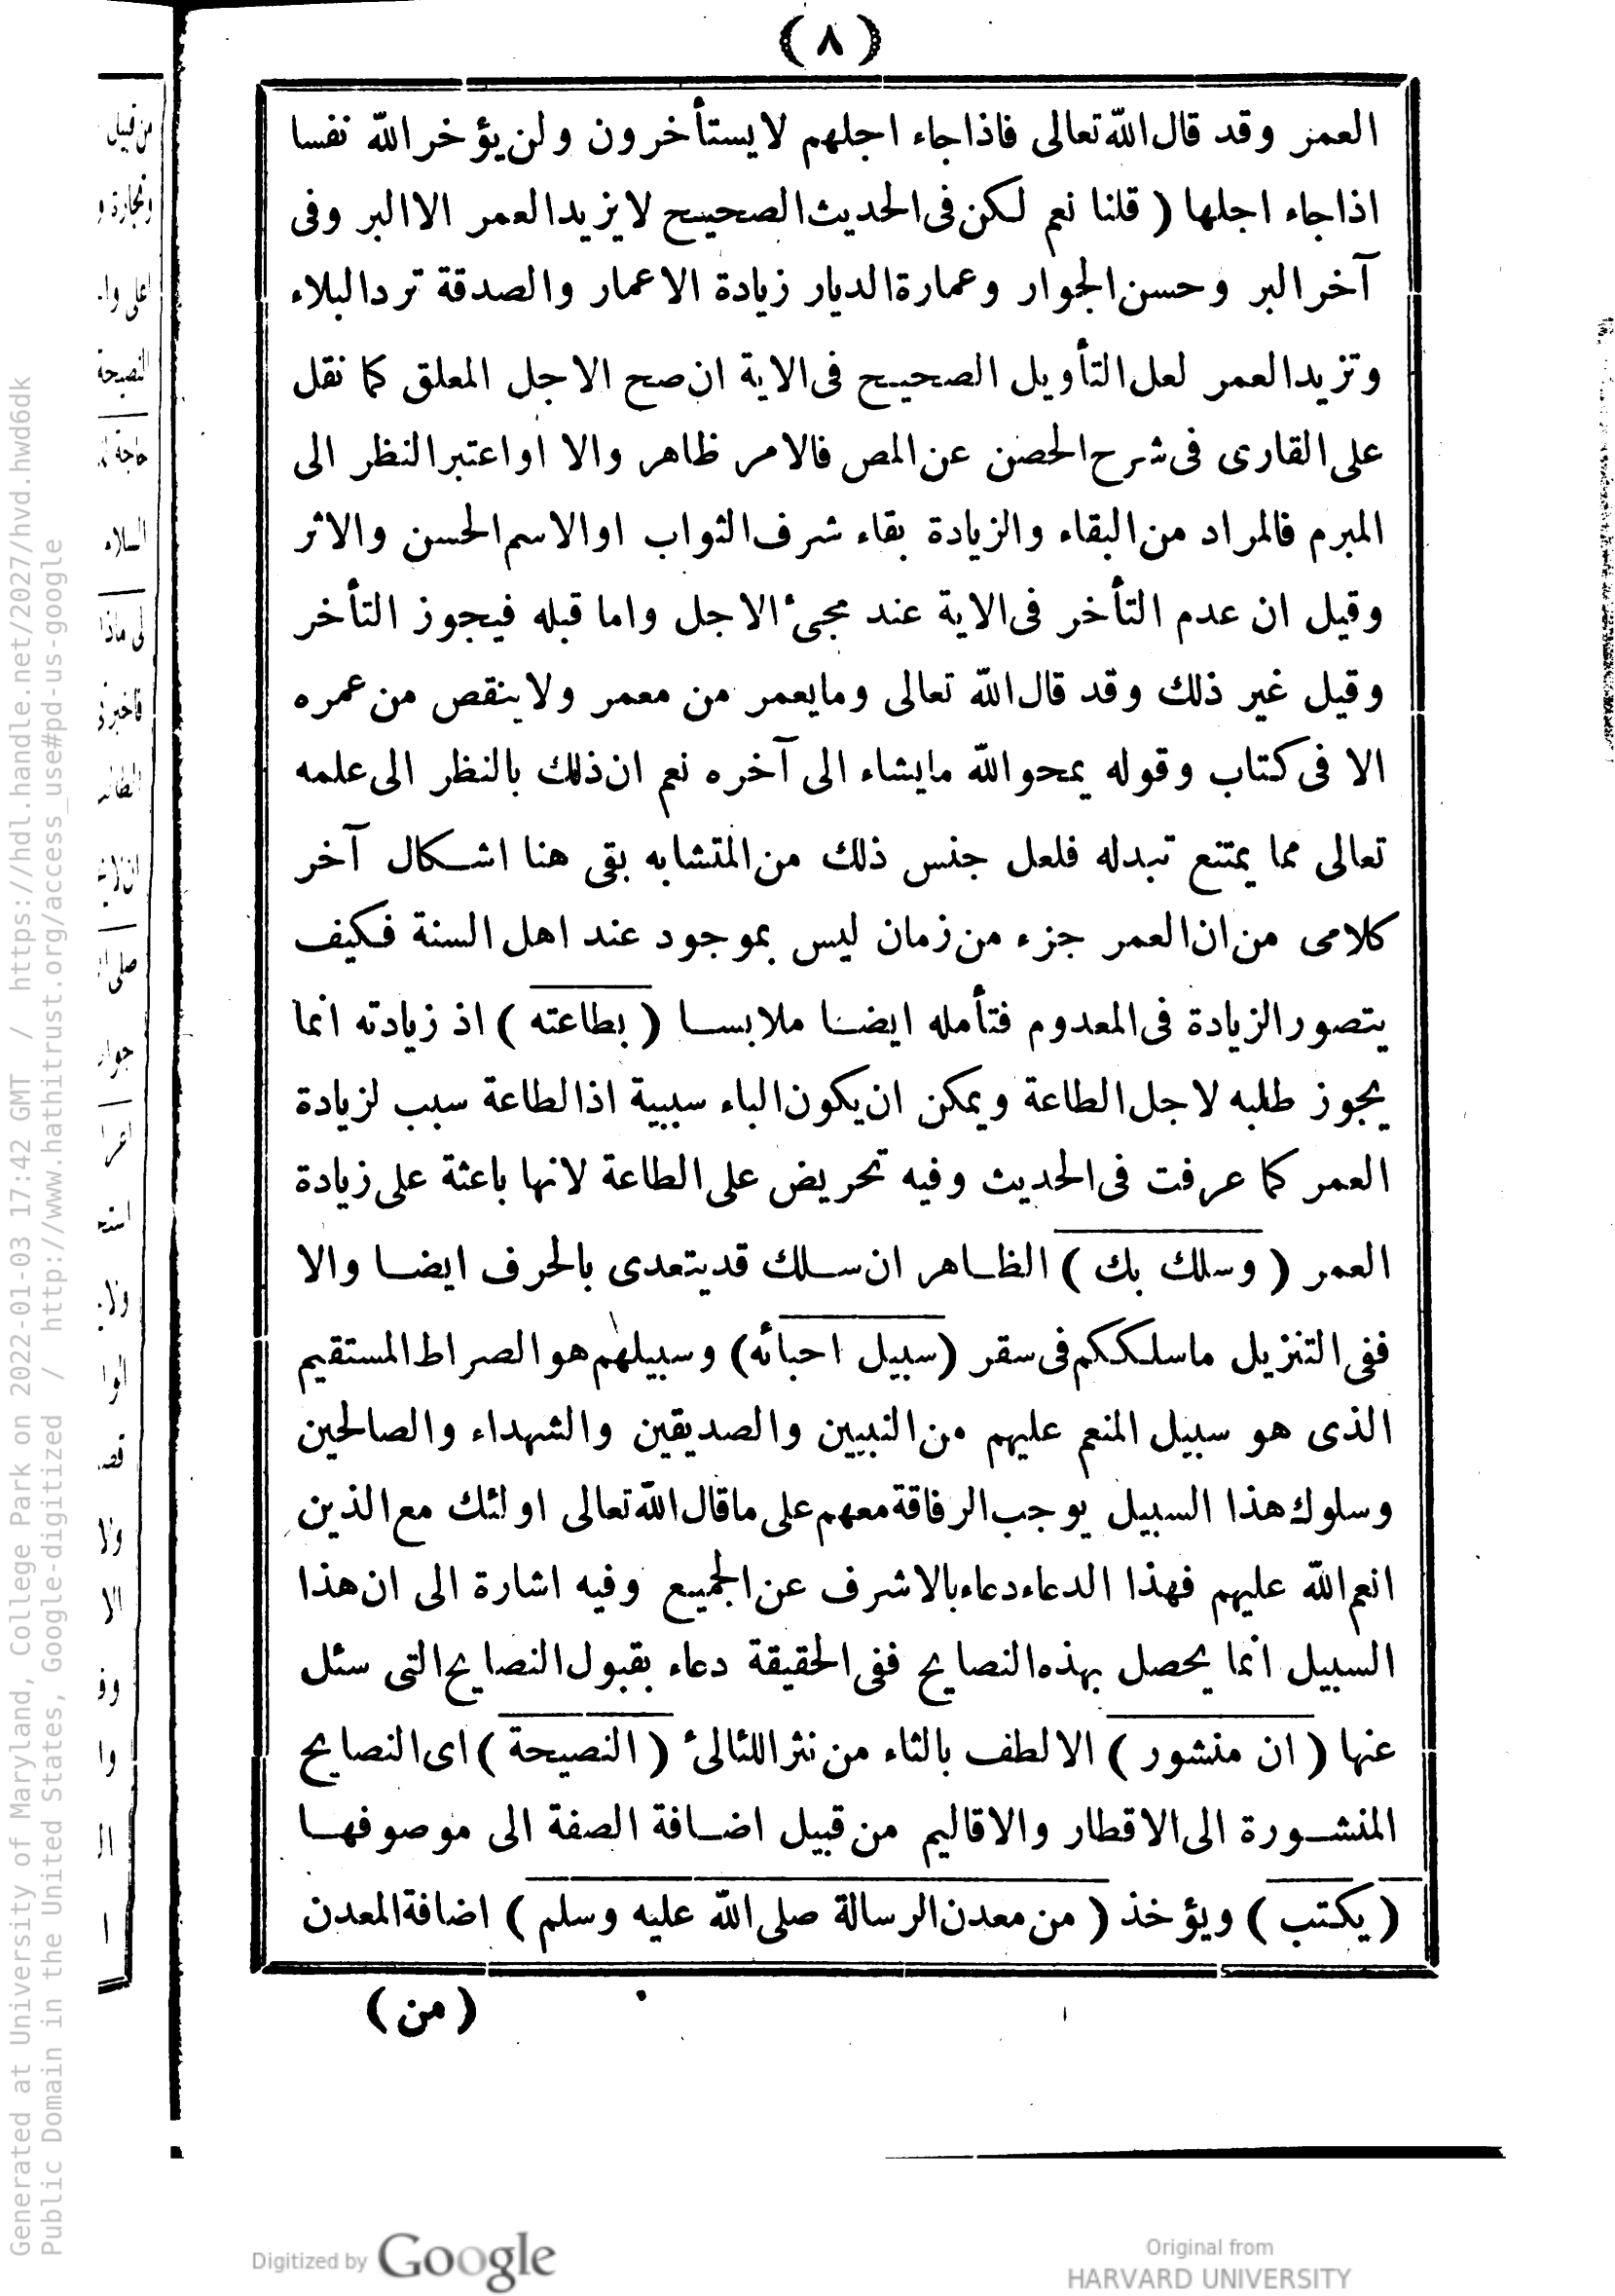 ( ٨ )
العمر وقد قال الله تعالى فاذا جاء اجلهم لا يستأخرون ولن يؤخر الله نفسا
اذا جاء اجلها ( قلنا نعم لكن فى الحديث الصحيح لا يزيد العمر الا البر وفى
آخر البر وحسن الجوار وعمارة الديار زيادة الاعمار والصدقة ترد البلاء
وتزيد العمر لعل التأويل الصحيح فى الاية ان صح الاجل المعلق كما نقل
على القارى فى شرح الحصن عن المص فالامر ظاهر والا او اعتبر النظر الى
المبرم فالمراد من البقاء والزيادة بقاء شرف الثواب او الاسم الحسن والاثر
وقيل ان عدم التأخر فى الاية عند مجىء الاجل واما قبله فيجوز التأخر
وقيل غير ذلك وقد قال الله تعالى وما يعمر من معمر ولا ينقص من عمره
الا فى كتاب وقوله يمحو الله ما يشاء الى آخره نعم ان ذلك بالنظر الى علمه
تعالى مما يمتنع تبدله فلعل جنس ذلك من المتشابه بقى هنا اشكال آخر
كلامى من ان العمر جزء من زمان ليس بموجود عند اهل السنة فكيف
يتصور الزيادة فى المعدوم فتأمله ايضا ملابسا ( بطاعته ) اذ زيادته انما
يجوز طلبه لاجل الطاعة ويمكن ان يكون الباء سببية اذ الطاعة سبب لزيادة
العمر كما عرفت فى الحديث وفيه تحريض على الطاعة لانها باعثة على زيادة
العمر ( وسلك بك ) الظاهر ان سلك قد يتعدى بالحرف ايضا والا
ففى التنزيل ما سلككم فى سقر (سبيل احبائه) وسبيلهم هو الصراط المستقيم
الذى هو سبيل المنعم عليهم من النبيين والصديقين والشهداء والصالحين
وسلوك هذا السبيل يوجب الرفاقة معهم على ما قال الله تعالى اولئك مع الذين
انعم الله عليهم فهذا الدعاء دعاء بالاشرف عن الجميع وفيه اشارة الى ان هذا
السبيل انما يحصل بهذه النصايح ففى الحقيقة دعاء بقبول النصايح التى سئل
عنها ( ان منشور ) الالطف بالثاء من نثر اللئالىء ( النصيحة ) اى النصايح
المنشورة الى الاقطار والاقاليم من قبيل اضافة الصفة الى موصوفها
( يكتب ) ويؤخذ ( من معدن الرسالة صلى الله عليه وسلم ) اضافة المعدن
( من )
Generated at University of Maryland, College Park on 2022-01-03 17:42 GMT / https://hdl.handle.net/2027/hvd.hwd6dk
Public Domain in the United States, Google-digitized / http://www.hathitrust.org/access_use#pd-us-google
Digitized by Google
Original from
HARVARD UNIVERSITY